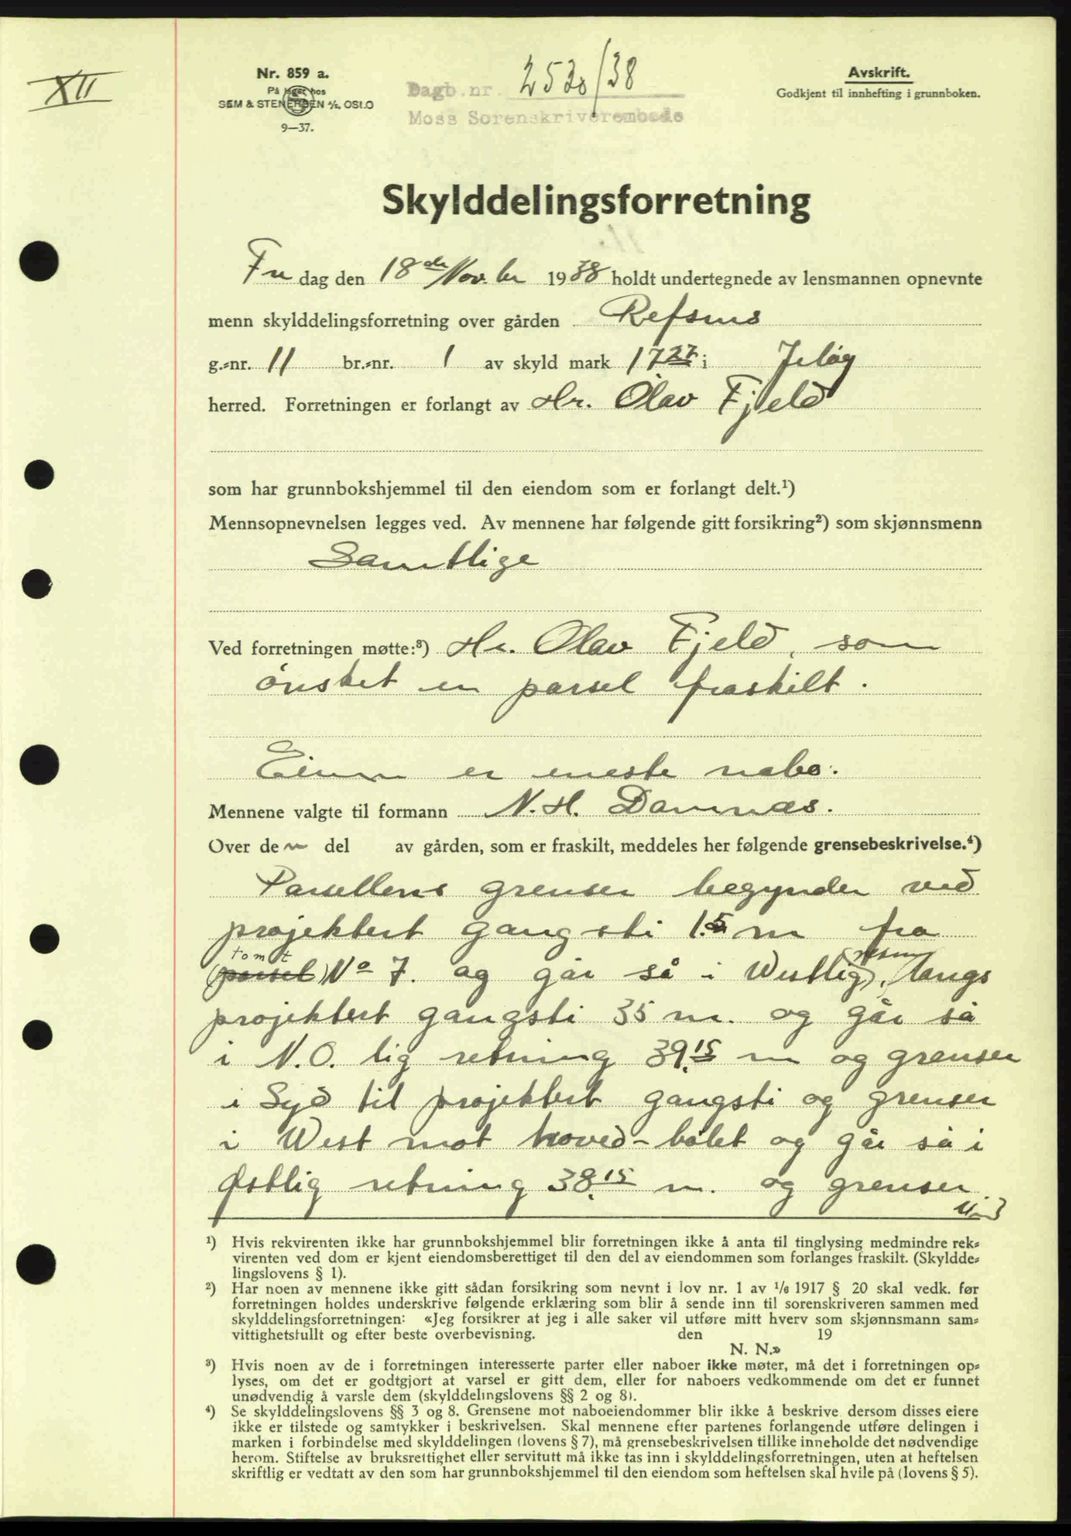 XII
Nr. 859 a.
På lager hos
SEM & STENERSEN A/S, OSLO
9—37.
Dagb.nr. 2520/38
Moss Sorenskriverembede
Avskrift.
Godkjent til innhefting i grunnboken.
Skylddelingsforretning
Fre dag den 18de Nov.br 1938 holdt undertegnede av lensmannen opnevnte
menn skylddelingsforretning over gården Refsnes
g.-nr. 11 br.-nr. 1 av skyld mark 17 27 i Jeløy
herred. Forretningen er forlangt av Hr. Olav Fjeld
som har grunnbokshjemmel til den eiendom som er forlangt delt.¹)
Mennsopnevnelsen legges ved. Av mennene har følgende gitt forsikring²) som skjønnsmenn
Samtlige
Ved forretningen møtte:³) Hr. Olav Fjeld, som
ønsket en parsel fraskilt.
Eieren er eneste nabo.
Mennene valgte til formann N. H. Damnæs.
Over de n del av gården, som er fraskilt, meddeles her følgende grensebeskrivelse.⁴)
Parsellens grenser begynder ved
projektert gangsti 1.5 m fra
tomt
(parsel) No 7. og går så i Westlig retn, langs
projektert gangsti 35 m. og går så
i N.O. lig retning 39.15 m og grenser
i Syd til projektert gangsti og grenser
i West mot hoved-bølet og går så i
Østlig retning 38.15 m. og grenser
¹) Hvis rekvirenten ikke har grunnbokshjemmel blir forretningen ikke å anta til tinglysing medmindre rek-
virenten ved dom er kjent eiendomsberettiget til den del av eiendommen som forlanges fraskilt. (Skyldde-
lingslovens § 1).
²) Har noen av mennene ikke gitt sådan forsikring som nevnt i lov nr. 1 av 1/6 1917 § 20 skal vedk. før
forretningen holdes underskrive følgende erklæring som blir å sende inn til sorenskriveren sammen med
skylddelingsforretningen: «Jeg forsikrer at jeg i alle saker vil utføre mitt hverv som skjønnsmann sam-
vittighetsfullt og efter beste overbevisning. den 19
N. N.»
³) Hvis noen av de i forretningen interesserte parter eller naboer ikke møter, må det i forretningen op-
lyses, om det er godtgjort at varsel er gitt dem, eller for naboers vedkommende om det er funnet
unødvendig å varsle dem (skylddelingslovens §§ 2 og 8).
⁴) Se skylddelingslovens §§ 3 og 8. Grensene mot naboeiendommer blir ikke å beskrive dersom disses eiere
ikke er tilstede og samtykker i beskrivelsen. Skal mennene efter partenes forlangende utføre delingen i
marken i forbindelse med skylddelingen (lovens § 7), må grensebeskrivelsen tillike inneholde det nødvendige
herom. Stiftelse av bruksrettighet eller servitutt må ikke tas inn i skylddelingsforretningen, uten at heftelsen
skriftlig er vedtatt av den som har grunnbokshjemmel til den eiendom som heftelsen skal hvile på (lovens § 5).